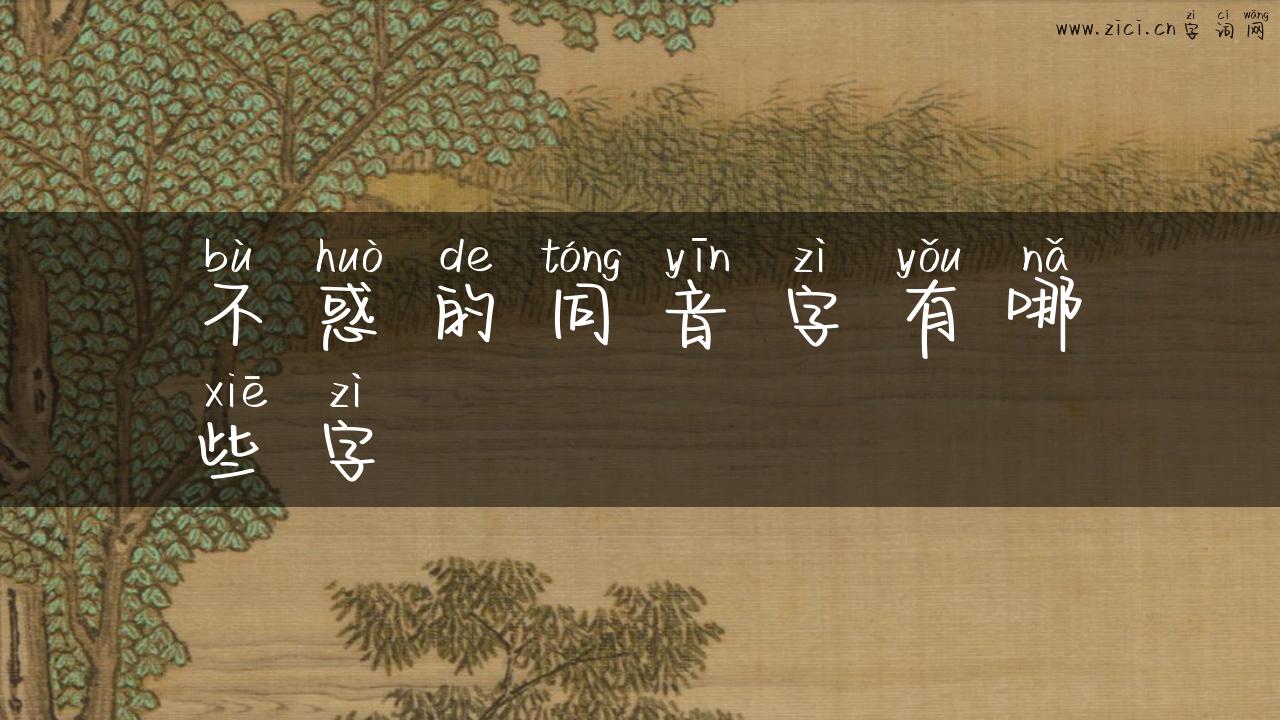 zì cí wǎng
www.zici.cn 字 词 网
bù huò de tóng yīn zì yǒu nǎ
不 惑 的 同 音 字 有 哪
xiē zì
些 字